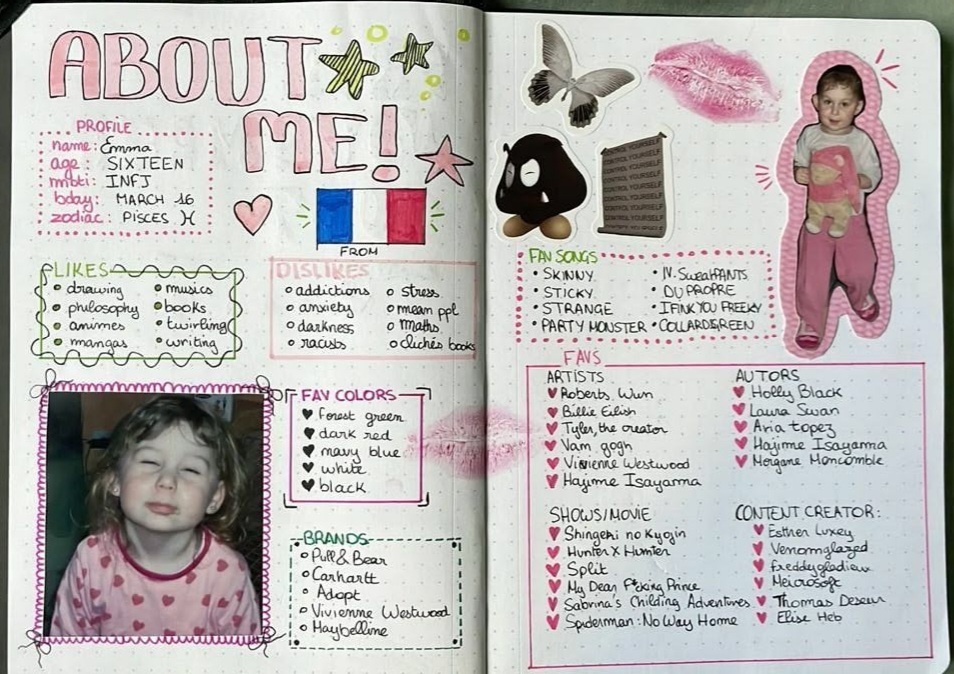 ABOUT
ME!
PROFILE
name: Emma
age: SIXTEEN
mbti: INFJ
bday: MARCH 16
zodiac: PISCES ♓
FROM
LIKES
• drawing • musics
• philosophy • books
• animes • twirling
• mangas • writing
DISLIKES
o addictions o stress
o anxiety o mean ppl
o darkness o maths
o racists o clichés books
FAV COLORS
♥ forest green
♥ dark red
♥ navy blue
♥ white
♥ black
BRANDS
o Pull & Bear
o Carhartt
o Adopt
o Vivienne Westwood
o Maybelline
CONTROL YOURSELF
CONTROL YOURSELF
CONTROL YOURSELF
CONTROL YOURSELF
CONTROL YOURSELF
CONTROL YOURSELF
CONTROL YOURSELF
FAV SONGS
• SKINNY • N. SweatPANTS
• STICKY • DU PROPRE
• STRANGE • IFINK YOU FREEKY
• PARTY MONSTER • COLLARDGREEN
FAVS
ARTISTS
♥ Roberts Wun
♥ Billie Eilish
♥ Tyler, the creator
♥ Van gogh
♥ Vivienne Westwood
♥ Hajime Isayama
AUTORS
♥ Holly Black
♥ Laura Swan
♥ Aria topez
♥ Hajime Isayama
♥ Morgane Moncomble
SHOWS/MOVIE
♥ Shingeki no Kyojin
♥ Hunter X Hunter
♥ Split
♥ My Dear F*cking Prince
♥ Sabrina's Childing Adventures
♥ Spiderman: No Way Home
CONTENT CREATOR:
♥ Esther Luxey
♥ Venomglazed
♥ freddygladieux
♥ Meicrosoft
♥ Thomas
♥ Elise Heb